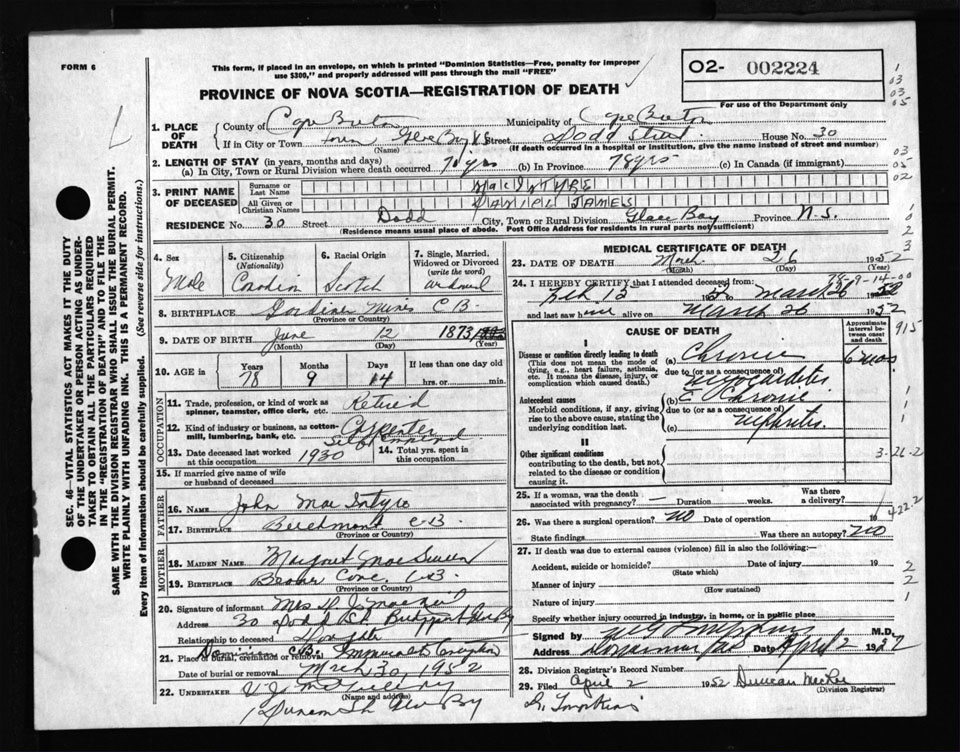 FORM 6
This form, if placed in an envelope, on which is printed "Dominion Statistics—Free, penalty for improper
use $300," and properly addressed will pass through the mail "FREE"
O2- 002224
PROVINCE OF NOVA SCOTIA—REGISTRATION OF DEATH
For use of the Department only
1. PLACE OF DEATH
County of Cape Breton Municipality of Cape Breton
If in City or Town Glace Bay Street Dodd Street House No. 30
(Name) (If death occurred in a hospital or institution, give the name instead of street and number)
2. LENGTH OF STAY (in years, months and days)
(a) In City, Town or Rural Division where death occurred yrs (b) In Province 78 yrs (c) In Canada (if immigrant)
3. PRINT NAME OF DECEASED
Surname or Last Name MacINTYRE
All Given or Christian Names DANIEL JAMES
RESIDENCE No. 30 Street Dodd City, Town or Rural Division Glace Bay Province N.S.
(Residence means usual place of abode. Post Office Address for residents in rural parts not sufficient)
4. Sex
Male
5. Citizenship (Nationality)
Canadian
6. Racial Origin
Scotch
7. Single, Married, Widowed or Divorced (write the word)
8. BIRTHPLACE Mines C B
(Province or Country)
9. DATE OF BIRTH June 12 1873
(Month) (Day) (Year)
10. AGE in Years Months Days If less than one day old
78 9 14 hrs. or min.
OCCUPATION
11. Trade, profession, or kind of work as spinner, teamster, office clerk, etc. Retired
12. Kind of industry or business, as cotton-mill, lumbering, bank, etc. Carpenter
13. Date deceased last worked at this occupation 1930
14. Total yrs. spent in this occupation
15. If married give name of wife or husband of deceased
FATHER
16. NAME John MacIntyre
17. BIRTHPLACE Beechmont C B.
(Province or Country)
MOTHER
18. MAIDEN NAME Margaret
19. BIRTHPLACE Cove, C B.
(Province or Country)
20. Signature of informant Mrs
Address 30 Dodd St.
Relationship to deceased
21. Place of burial, cremation or removal
Date of burial or removal March 30, 1952
22. UNDERTAKER
(Name and address)
MEDICAL CERTIFICATE OF DEATH
23. DATE OF DEATH March 26 1952
(Month) (Day)
24. I HEREBY CERTIFY that I attended deceased from:
Feb 15 March 26
and last saw alive on March 26 1952
CAUSE OF DEATH
Approximate interval between onset and death
I
Disease or condition directly leading to death
(This does not mean the mode of dying, e.g., heart failure, asthenia, etc. It means the disease, injury, or complication which caused death.)
(a) Chronic
due to (or as a consequence of)
Myocarditis
6 mos
Antecedent causes
Morbid conditions, if any, giving rise to the above cause, stating the underlying condition last.
(b) Chronic
due to (or as a consequence of)
(c) Nephritis
II
Other significant conditions
contributing to the death, but not related to the disease or condition causing it.
25. If a woman, was the death associated with pregnancy? — Duration weeks. Was there a delivery?
26. Was there a surgical operation? NO Date of operation 19
State findings Was there an autopsy? NO
27. If death was due to external causes (violence) fill in also the following:—
Accident, suicide or homicide? Date of injury 19
(State which)
Manner of injury
(How sustained)
Nature of injury
Specify whether injury occurred in industry, in home, or in public place
Signed by M.D.
Address Date April 2 19
28. Division Registrar's Record Number
29. Filed April 2 1952 Duncan MacRae
(Division Registrar)
G. Tompkins
SEC. 46—VITAL STATISTICS ACT MAKES IT THE DUTY
OF THE UNDERTAKER OR PERSON ACTING AS UNDER-
TAKER TO OBTAIN ALL THE PARTICULARS REQUIRED
IN THE "REGISTRATION OF DEATH" AND TO FILE THE
SAME WITH THE DIVISION REGISTRAR WHO SHALL ISSUE THE BURIAL PERMIT.
WRITE PLAINLY WITH UNFADING INK. THIS IS A PERMANENT RECORD.
Every item of information should be carefully supplied. (See reverse side for instructions.)